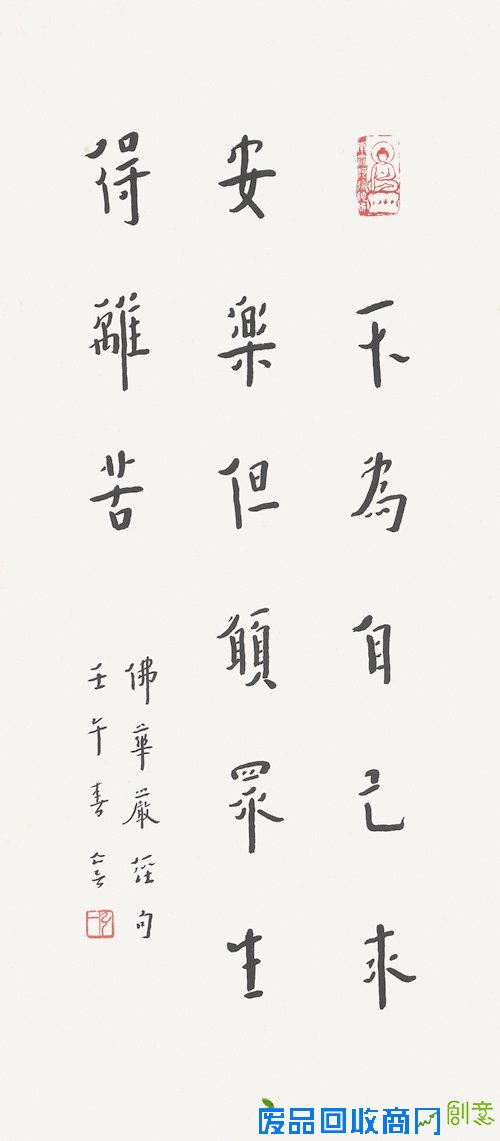 不為自己求
安樂但願眾生
得離苦
佛華嚴經句
壬午書
废品回收商网
創意